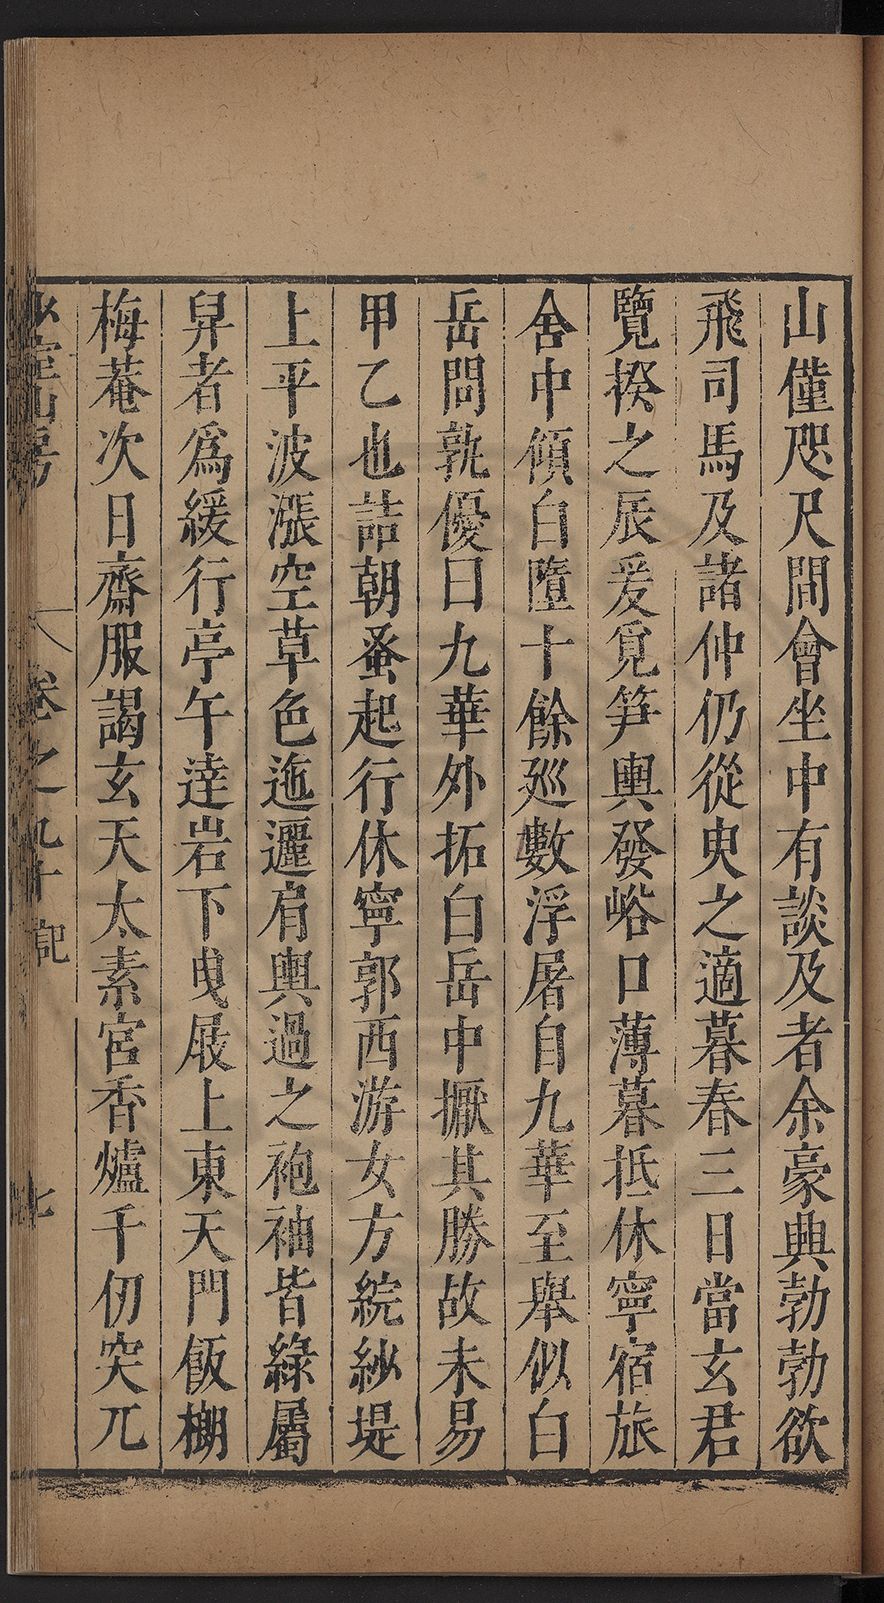 山僅咫尺間會坐中有談及者余豪興勃勃欲
飛司馬及諸仲仍從臾之適暮春三日當玄君
覽揆之辰爰覓笋輿發峪口薄暮抵休寧宿旅
舍中傾白墮十餘廵數浮屠自九華至舉似白
岳問孰優曰九華外拓白岳中撅其勝故未易
甲乙也詰朝蚤起行休寧郭西游女方綻紗堤
上平波漲空草色迤邐肩輿過之袍袖皆綠屬
舁者爲緩行亭午逹岩下曳屐上東天門飯榔
梅菴次日齋服謁玄天太素宮香爐千仞突兀
山房 卷之九十 記 七